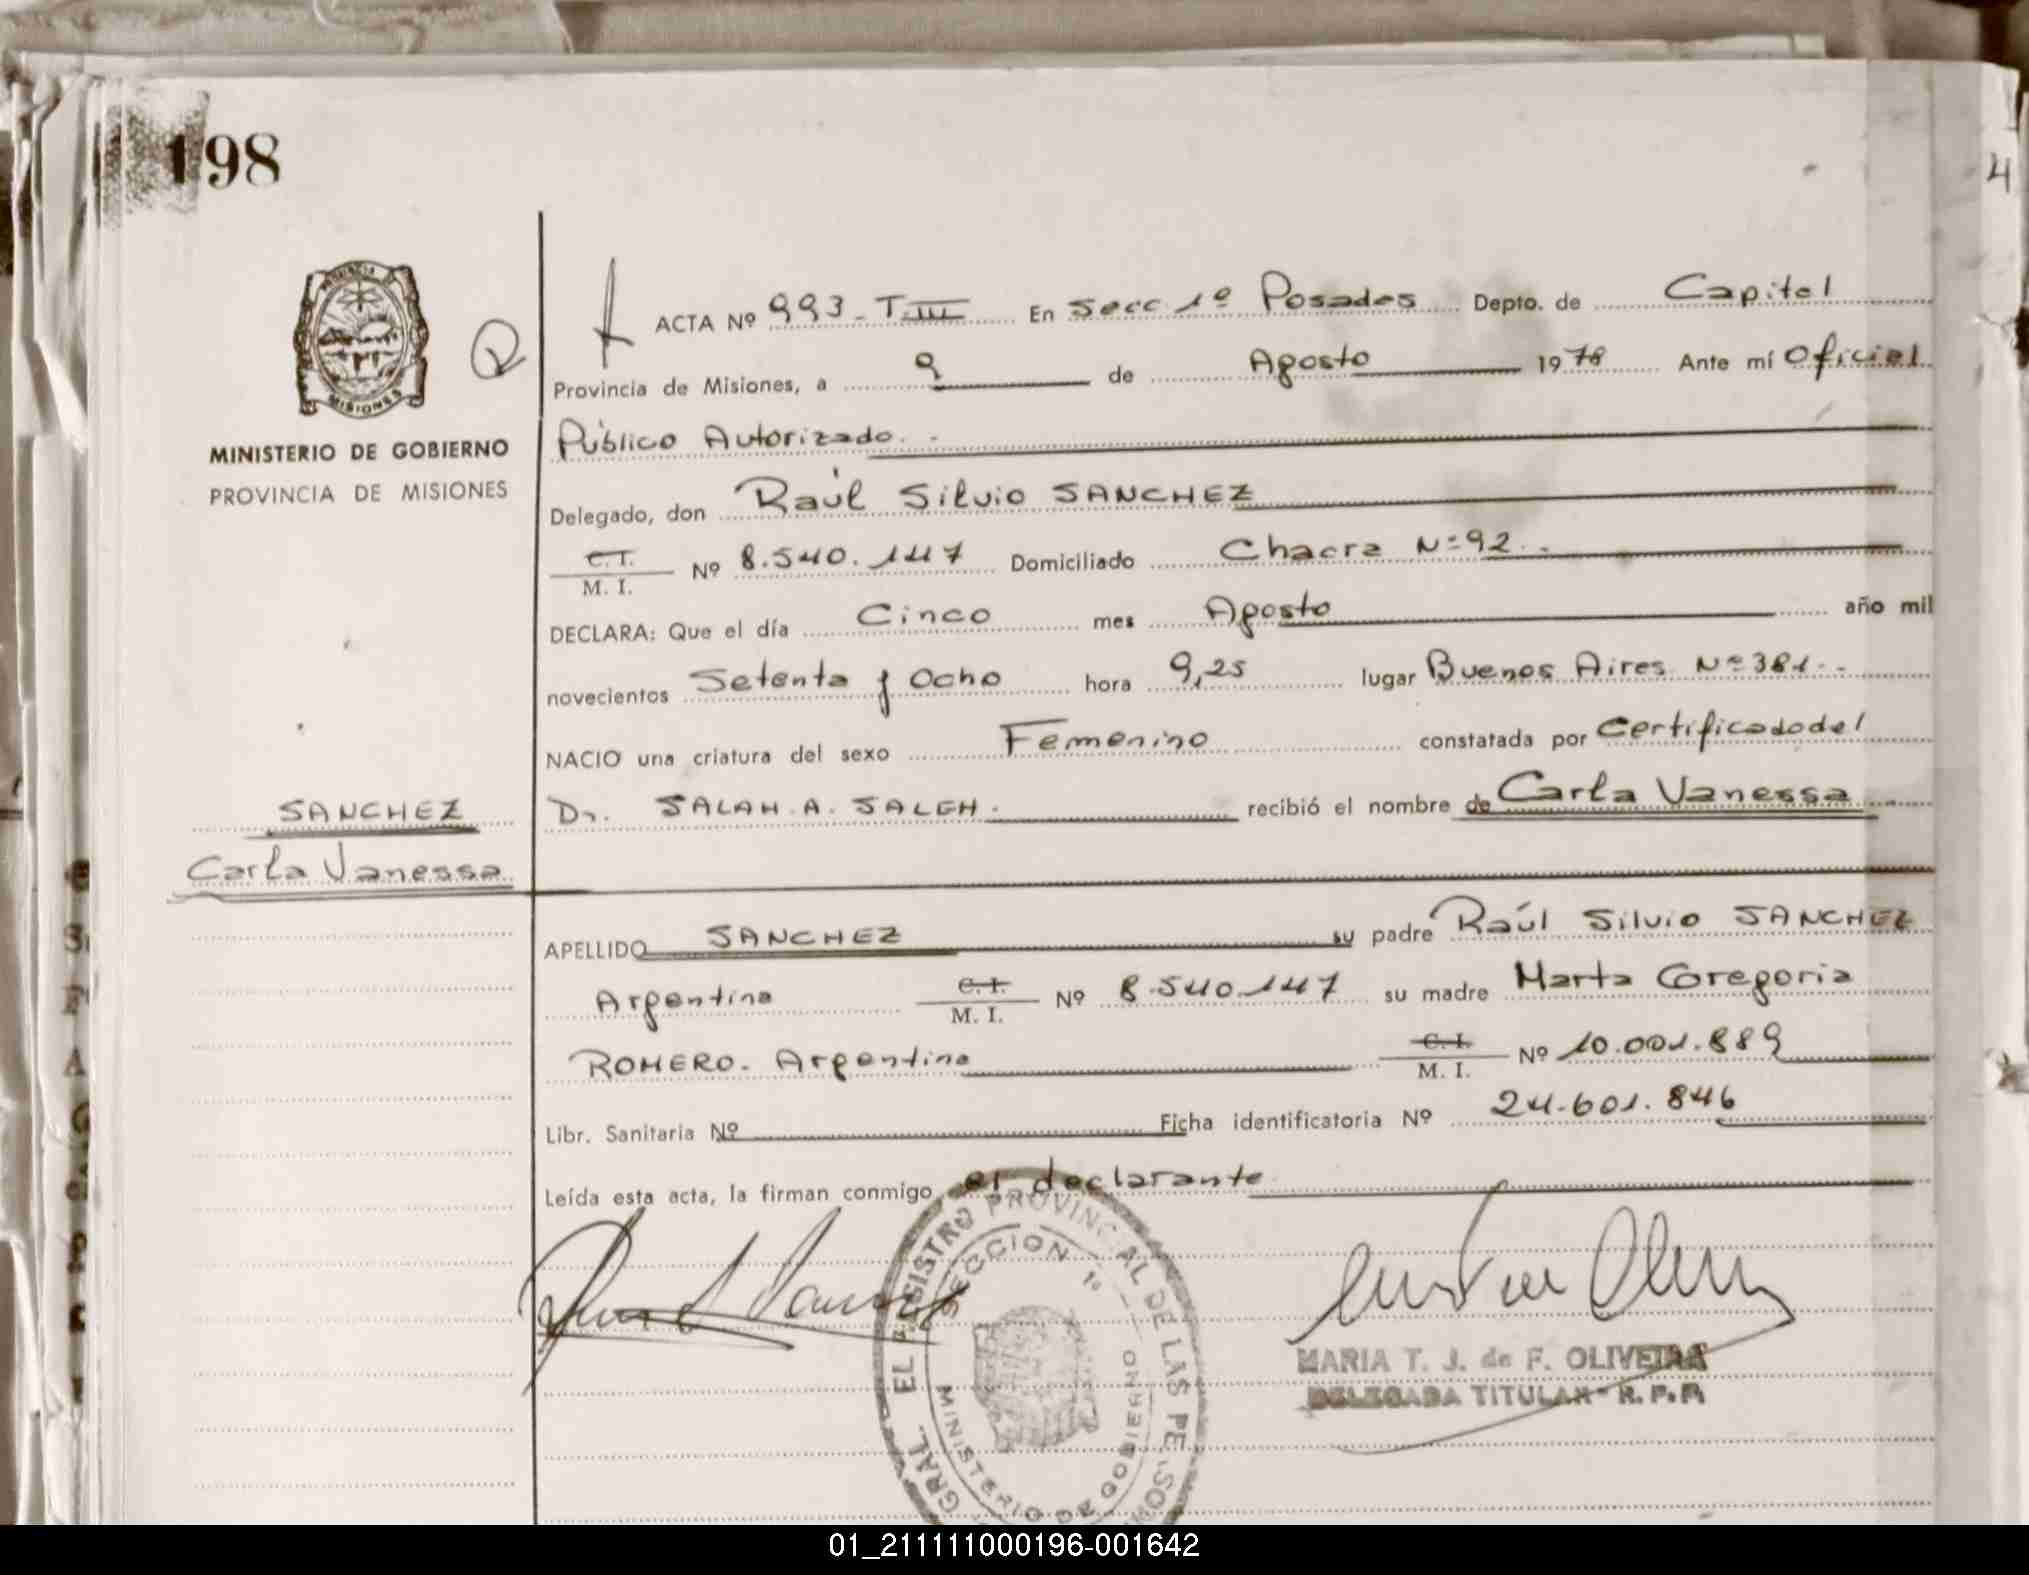 198
4
PROVINCIA
MISIONES
MINISTERIO DE GOBIERNO
PROVINCIA DE MISIONES
ACTA Nº 993 - T. III En Secc 1º Posadas Depto. de Capital
Provincia de Misiones, a 9 de Agosto 1978 Ante mí Oficial
Público Autorizado. -
Delegado, don Raúl Silvio SANCHEZ
C. I.
M. I. Nº 8.540.147 Domiciliado Chacra Nº 92. -
DECLARA: Que el día Cinco mes Agosto año mil
novecientos Setenta y Ocho hora 9,25 lugar Buenos Aires Nº 381. -
NACIO una criatura del sexo Femenino constatada por Certificado del
Dr. SALAH. A. SALEH. recibió el nombre de Carla Vanessa
SANCHEZ
Carla Vanessa
APELLIDO SANCHEZ su padre Raúl Silvio SANCHEZ
Argentina C. I.
M. I. Nº 8.540.147 su madre Marta Gregoria
ROMERO. Argentina C. I.
M. I. Nº 10.001.889
Libr. Sanitaria Nº Ficha identificatoria Nº 24.601.846
Leída esta acta, la firman conmigo el declarante
GRAL. EL REGISTRO PROVINCIAL DE LAS PERSON
SECCION 1º
MINISTERIO DE GOBIERNO
MARIA T. J. de F. OLIVEIRA
DELEGADA TITULAR - R. P. P.
01_211111000196-001642